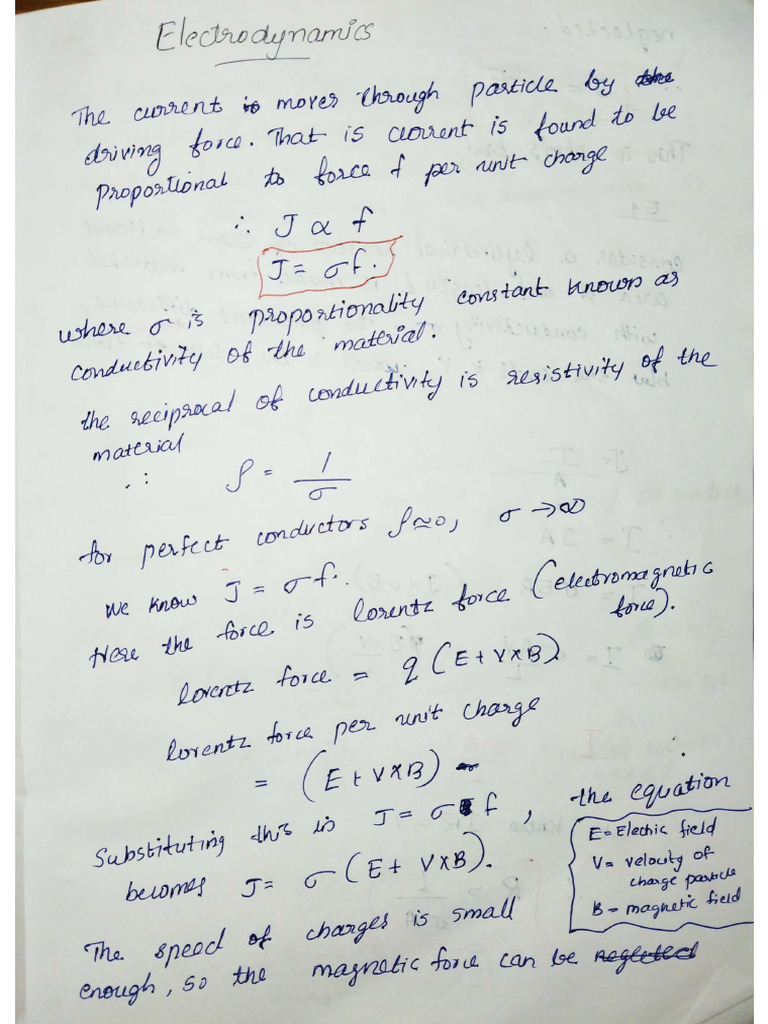 Electrodynamics
The current is moves through particle by the
driving force. That is current is found to be
proportional to force f per unit charge
∴ J α f
J = σf.
where σ is proportionality constant known as
conductivity of the material.
the reciprocal of conductivity is resistivity of the
material
∴ ρ = 1/σ
for perfect conductors ρ≃0, σ→∞
we know J = σf.
Here the force is lorentz force (electromagnetic
force).
lorentz force = q (E + V×B).
lorentz force per unit charge
= (E + V×B)
Substituting this in J = σ f, the equation
becomes J = σ (E + V×B).
E = Electric field
V = velocity of
charge particle
B = magnetic field
The speed of charges is small
enough, so the magnetic force can be neglected